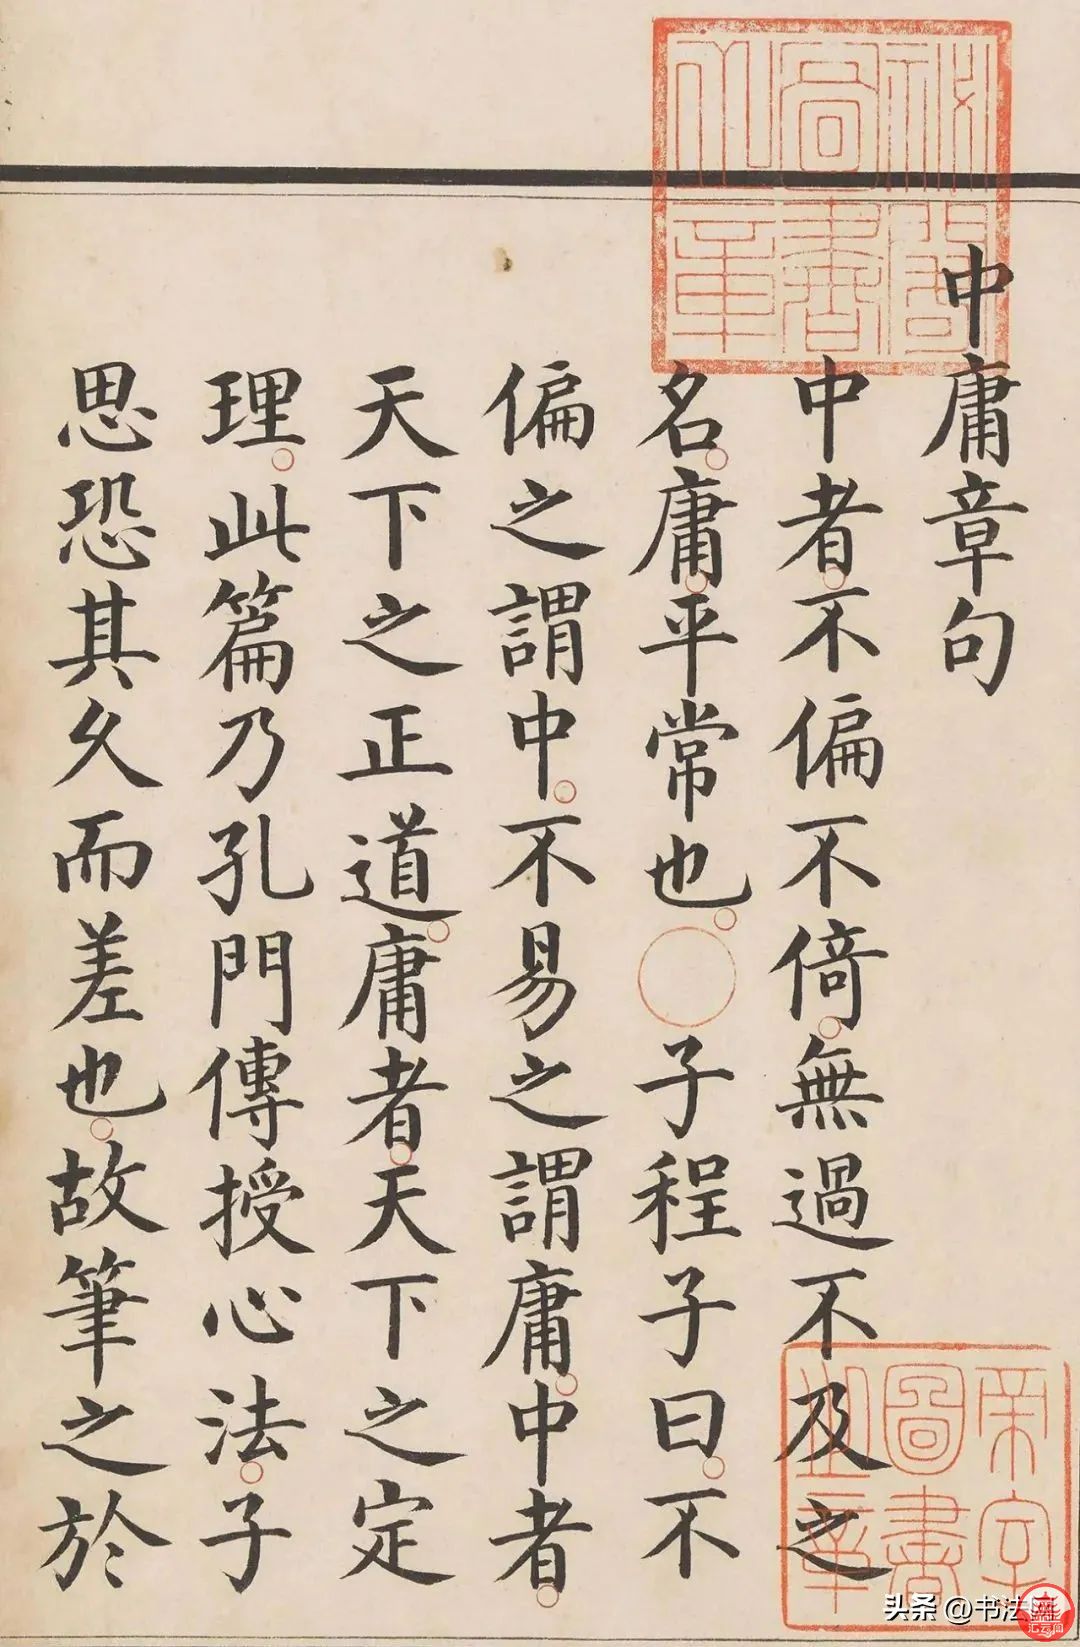 中庸章句
中者不偏不倚無過不及之
名庸平常也○子程子曰不
偏之謂中不易之謂庸中者
天下之正道庸者天下之定
理此篇乃孔門傳授心法子
思恐其久而差也故筆之於
秘閣圖書之章
圖書
头条 @书法